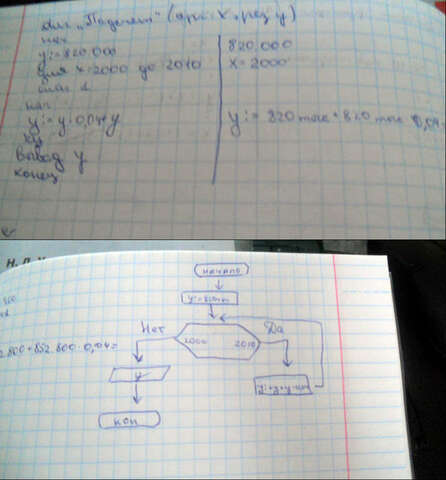 алг "Подсчет" (арг: x, рез y)
нач
y:=820.000
для x=2000 до 2010
шаг 1
нач
y:=y·0,04+y
кц
вывод y
конец
820.000
x=2000
y:= 820 тыс + 820 тыс · 0,04
начало
Нет
Да
2000
2010
2.800+852.800·0,04=
y
кон